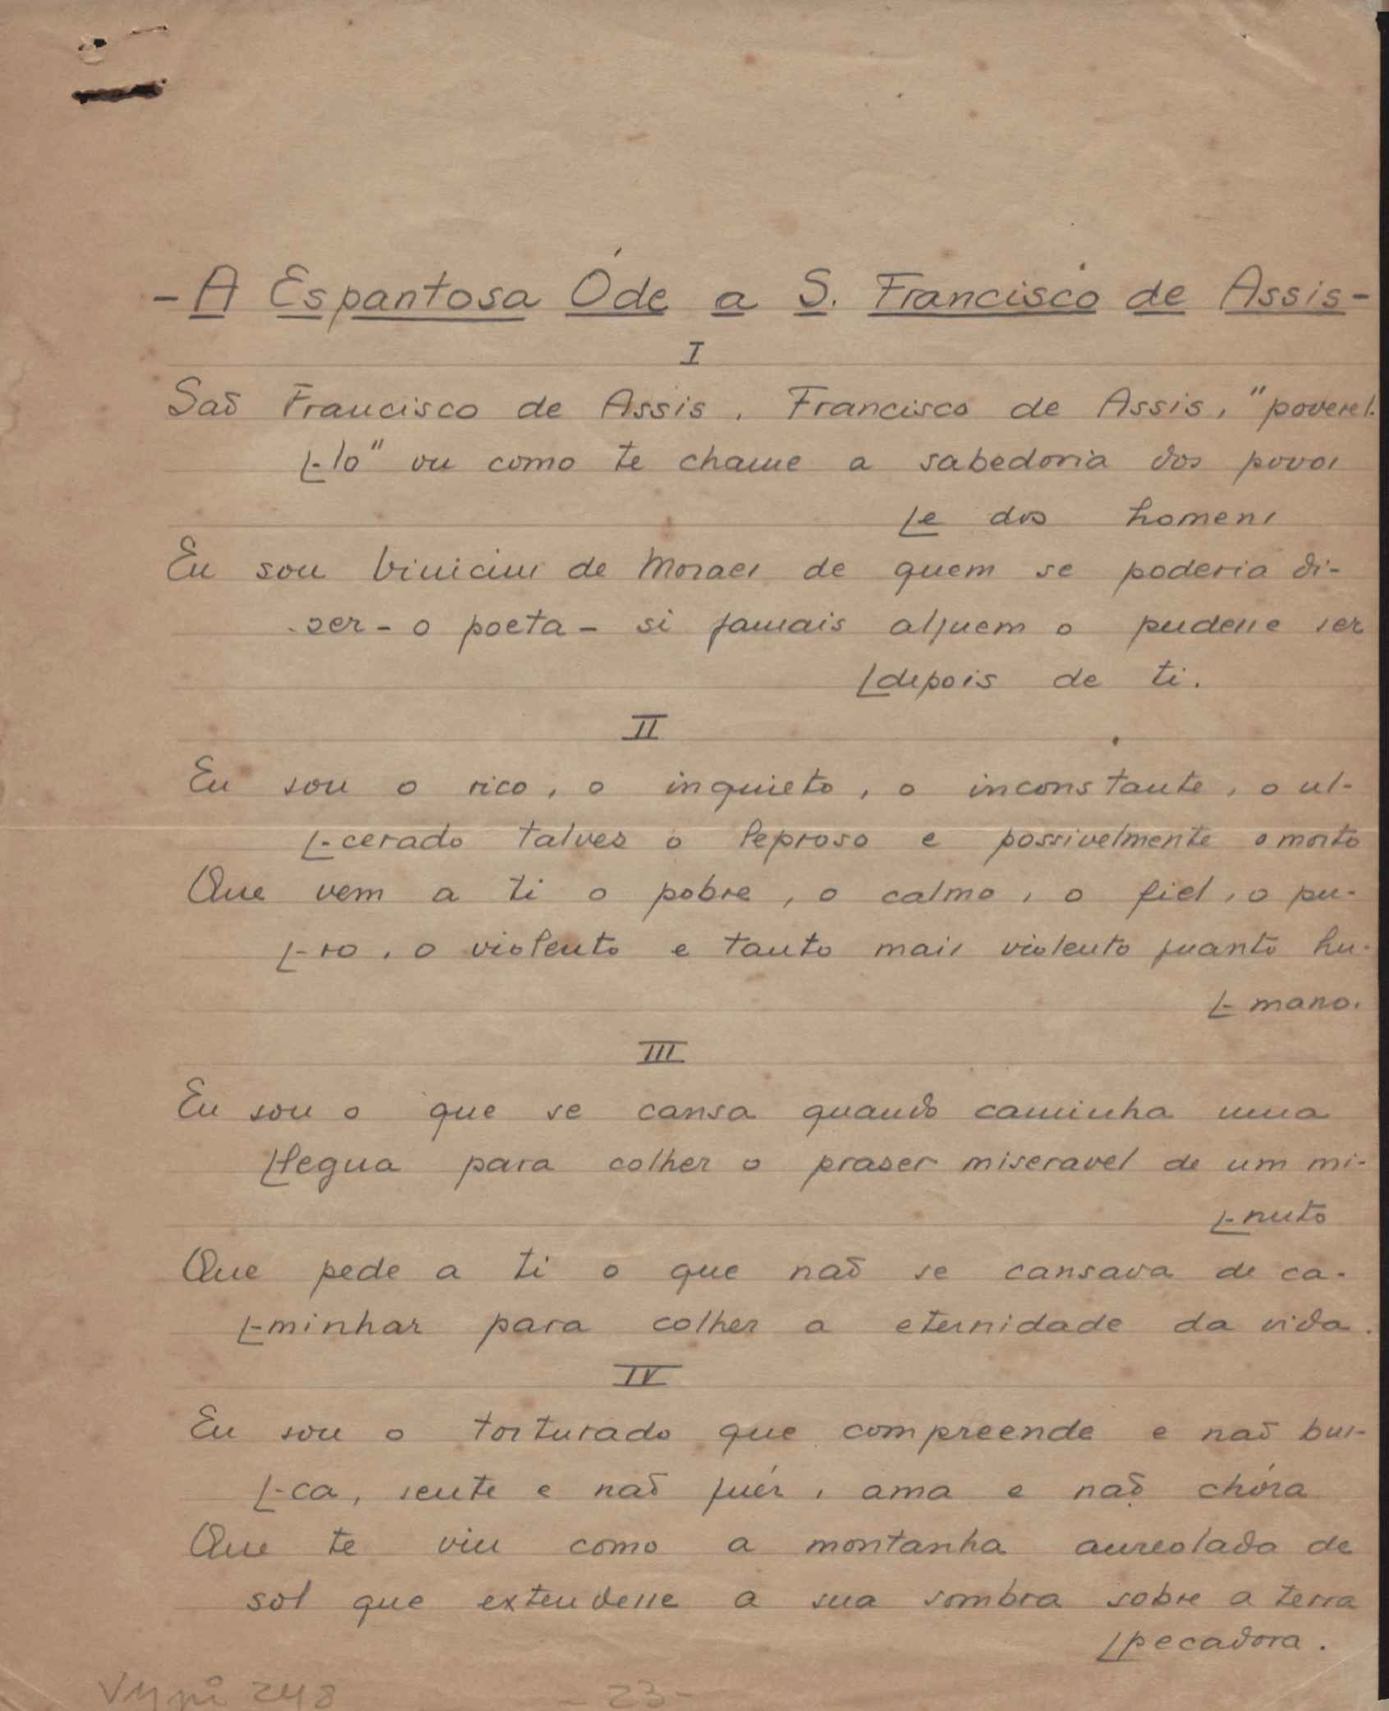 - A Espantosa Óde a S. Francisco de Assis -
I
Saõ Francisco de Assis, Francisco de Assis, "poverel-
-lo" ou como te chame a sabedoria dos povos
e dos homens
Eu sou Vinicius de Moraes de quem se poderia di-
zer - o poeta - si jamais alguem o pudesse ser
depois de ti.
II
Eu sou o rico, o inquieto, o inconstante, o ul-
-cerado talvez o leproso e possivelmente o morto
Que vem a ti o pobre, o calmo, o fiel, o pu-
-ro, o violento e tanto mais violento quanto hu-
-mano.
III
Eu sou o que se cansa quando caminha uma
legua para colher o prazer miseravel de um mi-
-nuto
Que pede a ti o que naõ se cansava de ca-
-minhar para colher a eternidade da vida.
IV
Eu sou o torturado que compreende e naõ bus-
-ca, sente e naõ quér, ama e naõ chóra
Que te viu como a montanha aureolada de
sol que extendesse a sua sombra sobre a terra
pecadora.
248
- 23 -